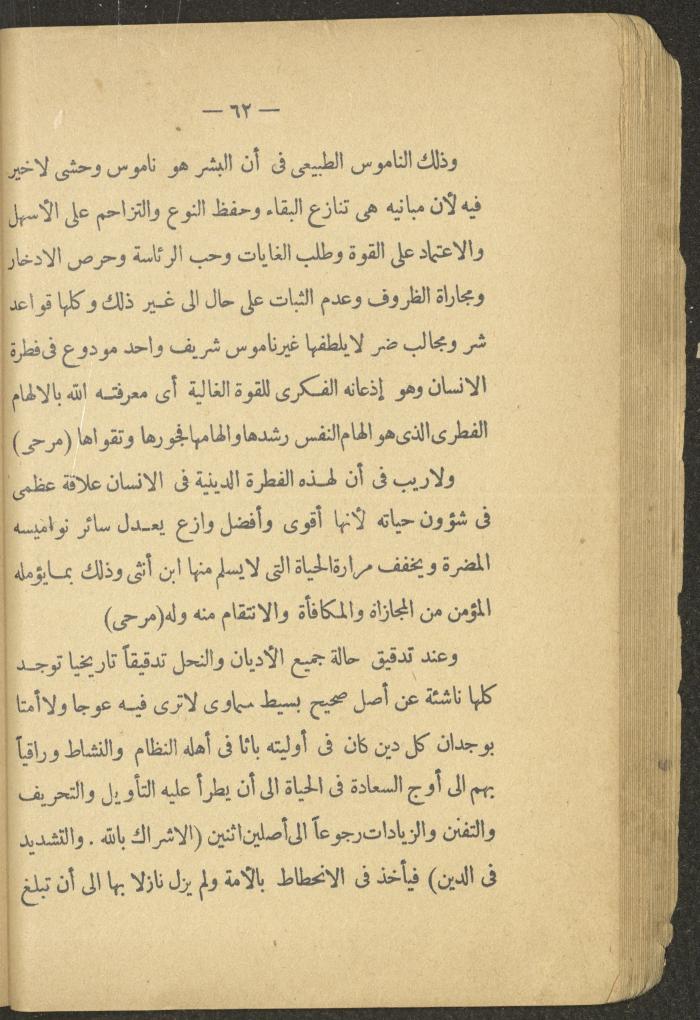 — ٦٢ —
وذلك الناموس الطبيعى فى أن البشر هو ناموس وحشى لاخير
فيه لأن مبانيه هى تنازع البقاء وحفظ النوع والتزاحم على الأسهل
والاعتماد على القوة وطلب الغايات وحب الرئاسة وحرص الادخار
ومجاراة الظروف وعدم الثبات على حال الى غير ذلك وكلها قواعد
شر ومجالب ضر لايلطفها غيرناموس شريف واحد مودوع فى فطرة
الانسان وهو إذعانه الفكرى للقوة الغالية أى معرفته الله بالالهام
الفطرى الذى هو الهام النفس رشدها والهامها فجورها وتقواها (مرحى)
ولاريب فى أن لهذه الفطرة الدينية فى الانسان علاقة عظمى
فى شؤون حياته لأنها أقوى وأفضل وازع يعدل سائر نواميسه
المضرة ويخفف مرارة الحياة التى لايسلم منها ابن أنثى وذلك بمايؤمله
المؤمن من المجازاة والمكافأة والانتقام منه وله (مرحى)
وعند تدقيق حالة جميع الأديان والنحل تدقيقاً تاريخيا توجد
كلها ناشئة عن أصل صحيح بسيط سماوى لاترى فيه عوجا ولاأمتا
بوجدان كل دين كان فى أوليته باثا فى أهله النظام والنشاط وراقياً
بهم الى أوج السعادة فى الحياة الى أن يطرأ عليه التأويل والتحريف
والتفنن والزيادات رجوعاً الى أصلين اثنين (الاشراك بالله . والتشديد
فى الدين) فيأخذ فى الانحطاط بالأمة ولم يزل نازلا بها الى أن تبلغ